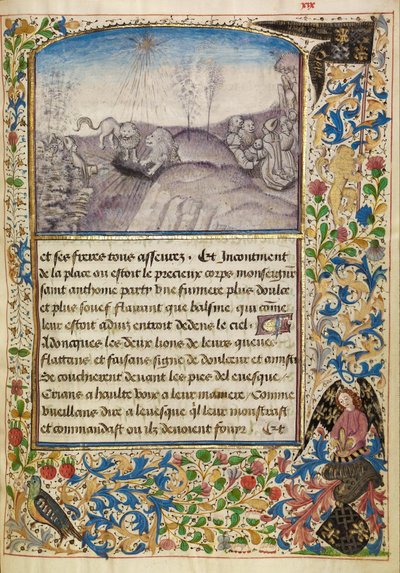 xix
et ses freres tous asseurez. Et Incontinent
de la place ou estoit le precieux corps monseigneur
saint anthoine party une fumiere plus doulce
et plus souef flairant que balsme, qui comme
leur estoit aduiz entroit dedens le ciel.
Adoncques les deux lions de leurs queues
flattans et faisans signe de douleur et ainsi
Se coucherent deuant les pies del euesque
Crians a haulte voix a leur maniere, Comme
vueillans dire a leuesque ql leur monstrast
et commandast ou ilz deuoient fouyr. Et